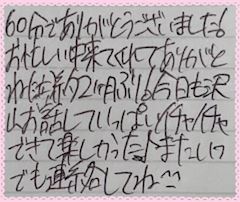 60分でありがとうございました!
お忙しい中来てくれてありがと
ね 約2ヶ月ぶり!今日も沢
山お話していっぱいイチャイチャ
できて楽しかった!またいつ
でも連絡してね^^